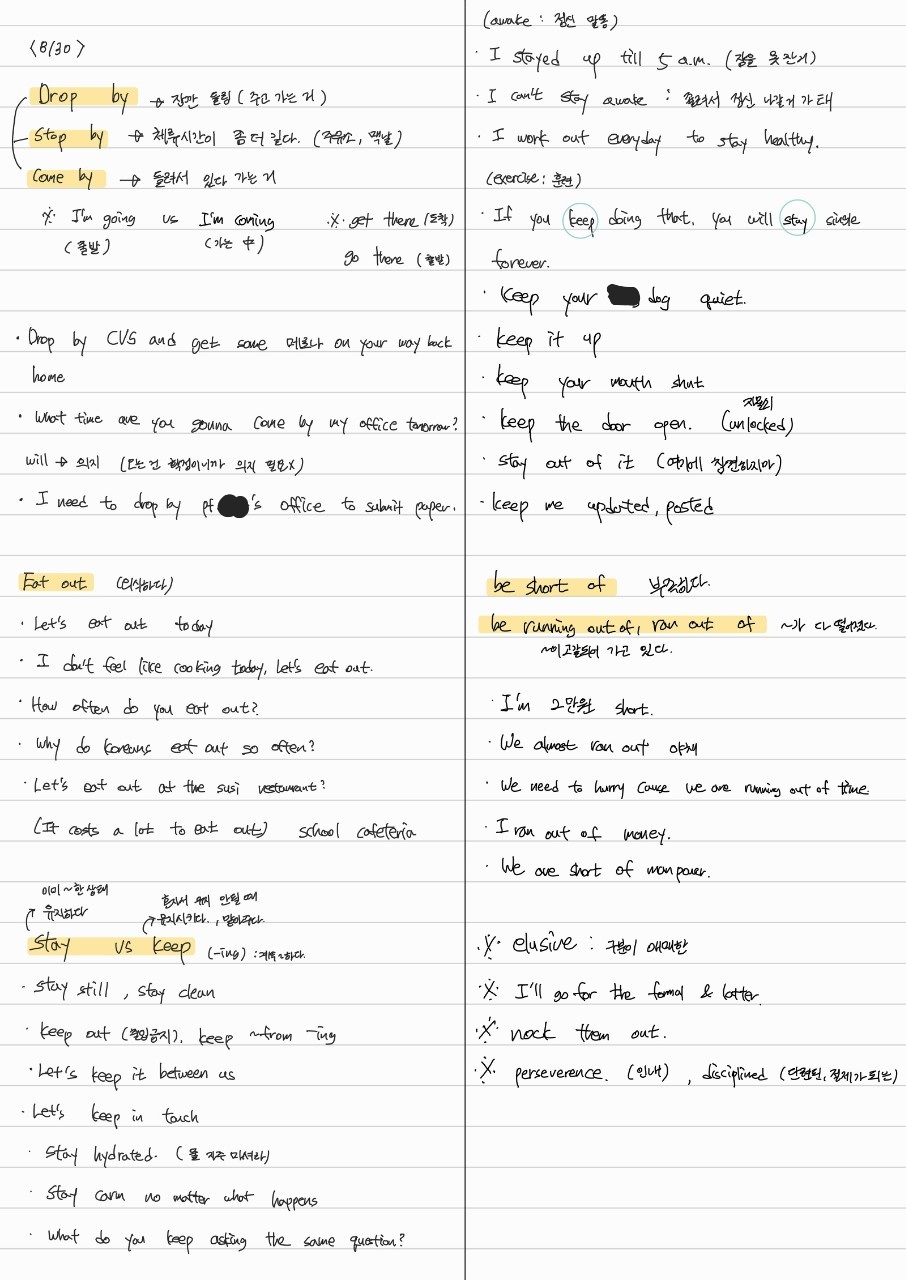 <8/30>
Drop by → 잠깐 들림 (주고 가는 거)
Stop by → 체류시간이 좀 더 길다. (주유소, 맥날)
Come by → 들려서 있다 가는 거
※ I'm going vs I'm coming ※ get there (도착)
(출발) (가는 中) go there (출발)
· Drop by CVS and get some 메로나 on your way back
home
· What time are you gonna come by my office tomorrow?
will → 의지 (묻는 건 확정이니까 의지 필요x)
· I need to drop by pf 's office to submit paper.
Eat out (외식하다)
· Let's eat out today
· I don't feel like cooking today, let's eat out.
· How often do you eat out?
· Why do koreans eat out so often?
· Let's eat out at the susi restaurant?
(It costs a lot to eat out) school cafeteria
이미 ~한 상태 혼자서 유지 안될 때
유지하다 유지시키다., 막아주다.
Stay vs keep (-ing) : 계속 ~하다.
· stay still, stay clean
· keep out (출입금지). keep ~from -ing
· Let's keep it between us
· Let's keep in touch
· Stay hydrated. (물 자주 마셔라)
· Stay carm no matter what happens
· What do you keep asking the same question?
(awake : 정신 말똥)
· I stayed up till 5 a.m. (잠을 못 잔거)
· I can't stay awake : 졸려서 정신 나갈거 가태
· I work out everyday to stay healthy.
(exercise : 훈련)
· If you keep doing that, you will stay single
forever.
· keep your dog quiet.
· keep it up
· keep your mouth shut
· keep the door open. (unlocked)
· stay out of it (여기에 참견하지마)
· keep me updated, posted
be short of 부족하다.
be running out of, ran out of ~가 다 떨어졌다.
~이 고갈되어 가고 있다.
· I'm 2만원 short.
· We almost ran out 야채
· We need to hurry cause we are running out of time
· I ran out of money.
· We are short of manpower.
※ elusive : 구분이 애매한
※ I'll go for the formal & latter.
※ nock them out.
※ perseverence. (인내), disciplined (단련된, 절제가 되는)